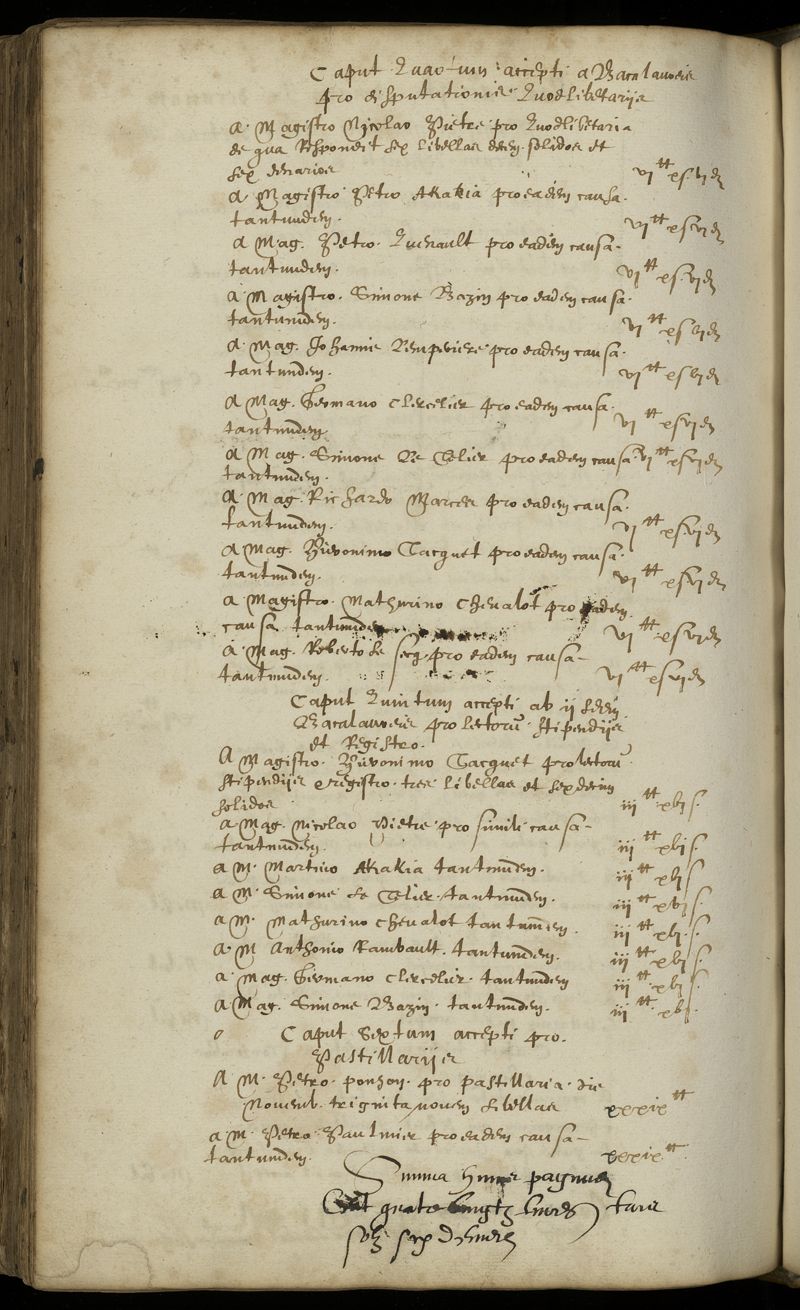 Caput Quartum accepti a Bacalaureis
pro disputationis Quodlibetariis
A Magistro Nicolao Pietre pro Quodlibetaria
de qua Respondit sex libellas decem solidos et
sex denarios vi tt x s vi d
A Magistro Petro Akakia pro eadem causa
tantundem. vi tt x s vi d
A Mag. Petro Quenault pro eadem causa
tantundem. vi tt x s vi d
A Magistro Simone Bazin pro eadem causa
tantundem. vi tt x s vi d
A Mag. Johanne pro eadem causa
tantundem. vi tt x s vi d
A Mag. Germano Clercelier pro eadem causa
tantundem vi tt x s vi d
A Mag. Simone Le Telier pro eadem causa vi tt x s vi d
tantundem.
A Mag. Richardo pro eadem causa
tantundem. vi tt x s vi d
A Mag. Hieronimo Tacquet pro eadem causa
tantundem. vi tt x s vi d
A Magistro Mathurino Chevalot pro eadem
causa tantundem vi tt x s vi d
A Mag. Roberto le secq pro eadem causa
tantundem. vi tt x s vi d
Caput Quintum accepti ab ijsdem
Bacalaureis pro lectorum stipendijs
et Registro.
A Magistro Hieronimo Tacquet pro lectorum
stipendijs e registro tres libellas et sexdecim
solidos iij tt xvi s.
A Mag. Nicolao Pietre pro simili causa
tantundem. iij tt xvi s.
A M. Martino Akakia tantundem. iij tt xvi s.
A M. Simone le Telier tantundem. iij tt xvi s.
A M. Mathurino Chevalot tantundem. iij tt xvi s.
A M Anthonio Rambault tantundem. iij tt xvi s.
A Mag. Germano Clercelier tantundem iij tt xvi s.
A Mag. Simone Bazin tantundem. iij tt xvi s.
Caput Sextum accepti pro
Pastillarijs
A M. Petro ponson pro pastillaria die
Novemb. triginta novem libellas xxxix tt
A M. Petro Paulmier pro eadem causa
tantundem. xxxix tt
Summa hujus paginae
Cent quatre vingtz livres
solz six deniers